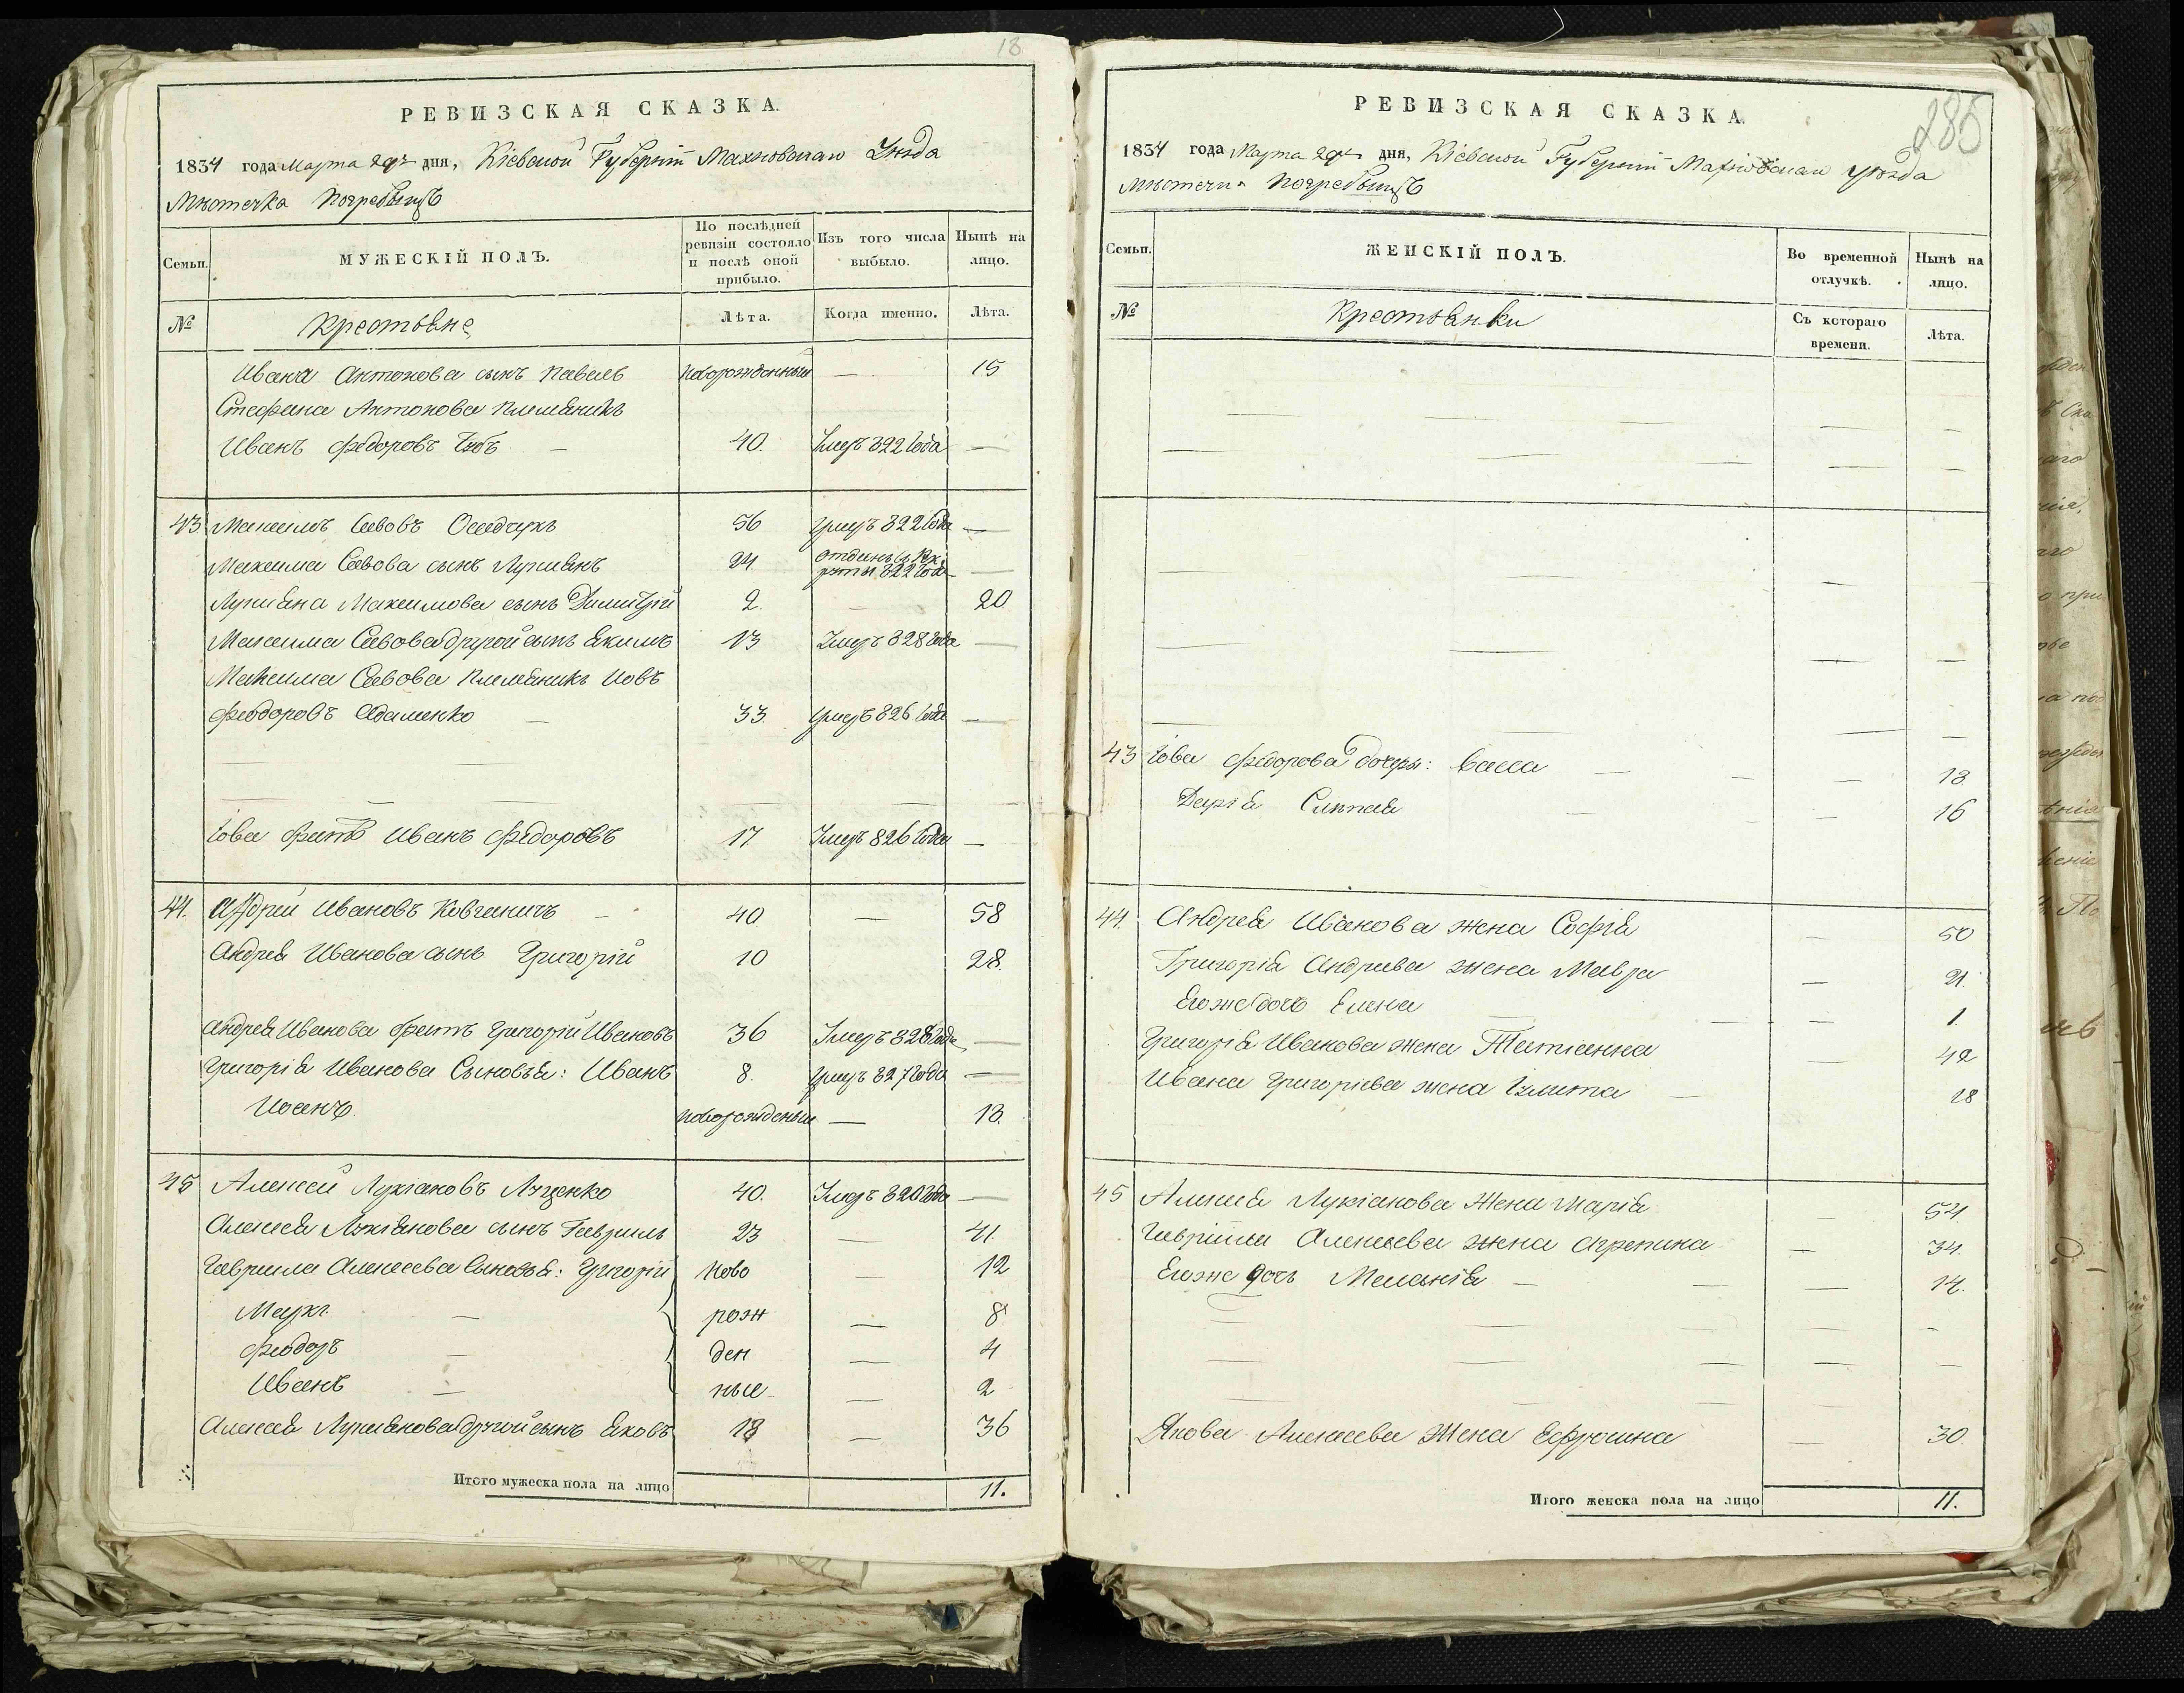 18
РЕВИЗСКАЯ СКАЗКА.
1834 года Марта 29го дня, Кіевской Губерніи Махновскаго Уѣзда
Мѣстечка Погребыщъ
Семьи.
МУЖЕСКІЙ ПОЛЪ.
По послѣдней ревизіи состояло и послѣ оной прибыло.
Изъ того числа выбыло.
Нынѣ на лицо.
№
Крестьяне
Лѣта.
Когда именно.
Лѣта.
Ивана Антонова сынъ Павелъ новорожденный — 15
Стефана Антонова племяникъ
Иванъ Федоровъ — 40. умеръ 822 года —
43. Максимъ Савовъ Осадчукъ 56 умеръ 822 года —
Максима Савова сынъ Лукіянъ 24 отданъ въ рекруты 822 года —
Лукіяна Максимова сынъ Димитрій 2. — 20
Максима Савова другой сынъ Якимъ 13 умеръ 828 года —
Максима Савова племяникъ Иовъ
Феодоровъ Адаменко — 33. умеръ 826 года —
Іова братъ Иванъ Федоровъ 17 умеръ 826 года —
44. Андрей Ивановъ Ковганичъ — 40. — 58
Андрея Иванова сынъ Григорій 10 28.
Андрея Иванова братъ Григорій Ивановъ 36 умеръ 828 года —
Григорія Иванова сыновья: Иванъ 8. умеръ 827 года —
Иванъ новорожденый — 18.
45 Алексей Лукіановъ Луценко 40. умеръ 820 года —
Алексея Лукіянова сынъ Гаврилъ 23 — 41.
Гаврила Алексеева сыновья: Григорій ново — 12
Марко — рож — 8
Феодоръ — ден — 4
Иванъ — ные — 2
Алексея Лукіянова другой сынъ Яковъ 18 — 36
Итого мужеска пола на лицо 11.
286
РЕВИЗСКАЯ СКАЗКА.
1834 года Марта 29го дня, Кіевской Губерніи Махновскаго уѣзда
Мѣстечка Погребыщъ
Семьи.
ЖЕНСКІЙ ПОЛЪ.
Во временной отлучкѣ.
Нынѣ на лицо.
№
Крестьянки
Съ котораго времени.
Лѣта.
43 Іова Федорова дочери: Васса — — — 18.
Дарія — — — 16
44. Андрея Иванова жена Софія — 50
Григорія Андреева жена Мавра — 21.
Егоже дочь Елена — — 1.
Григорія Иванова жена Татіанна — 42
Ивана Григоріева жена — 18
45 Алексея Лукіанова жена Марія — 54.
Гавріила Алексеева жена Агрепина — 34.
Егоже дочь Меланія — — — 14.
Якова Алексеева жена Ефросина — 30.
Итого женска пола на лицо 11.